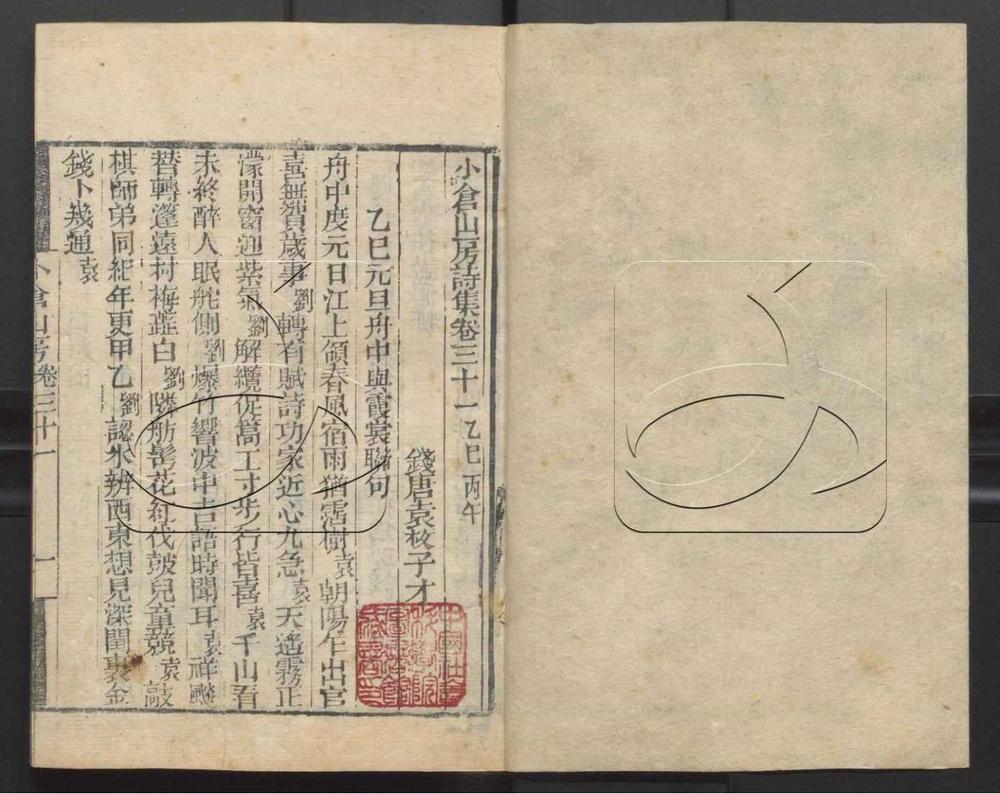 小倉山房詩集卷三十一 乙巳 丙午
錢唐袁枚子才
乙巳元旦舟中與霞裳聯句
舟中度元日江上領春風宿雨猶霑樹袁朝陽乍出宮
喜無賀歲事劉轉有賦詩功家近心尤急袁天遙霧正
濛開窗迎紫氣劉解纜促篙工寸步行皆喜袁千山看
未終醉人眠舵側劉爆竹響波中吉語時聞耳袁祥飈
替轉蓬遠村梅蕋白劉隣舫髩花紅伐皷兒童競袁敲
棋師弟同紀年更甲乙劉認水辨西東想見深閨裏金
錢卜幾通袁
小倉山房卷三十一
一
中國社會
科學院
圖書館
藏書印